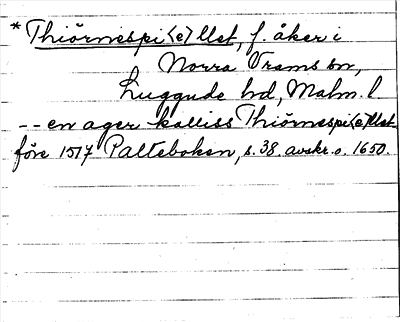 *Thiörnespi(e)llet, f. åker i
Norra Vrams sn,
Luggude hd, Malm. l.
-- en ager kalliss Thiörnespi(e)llet
före 1517 Palteboken, s. 38. avskr. o. 1650.